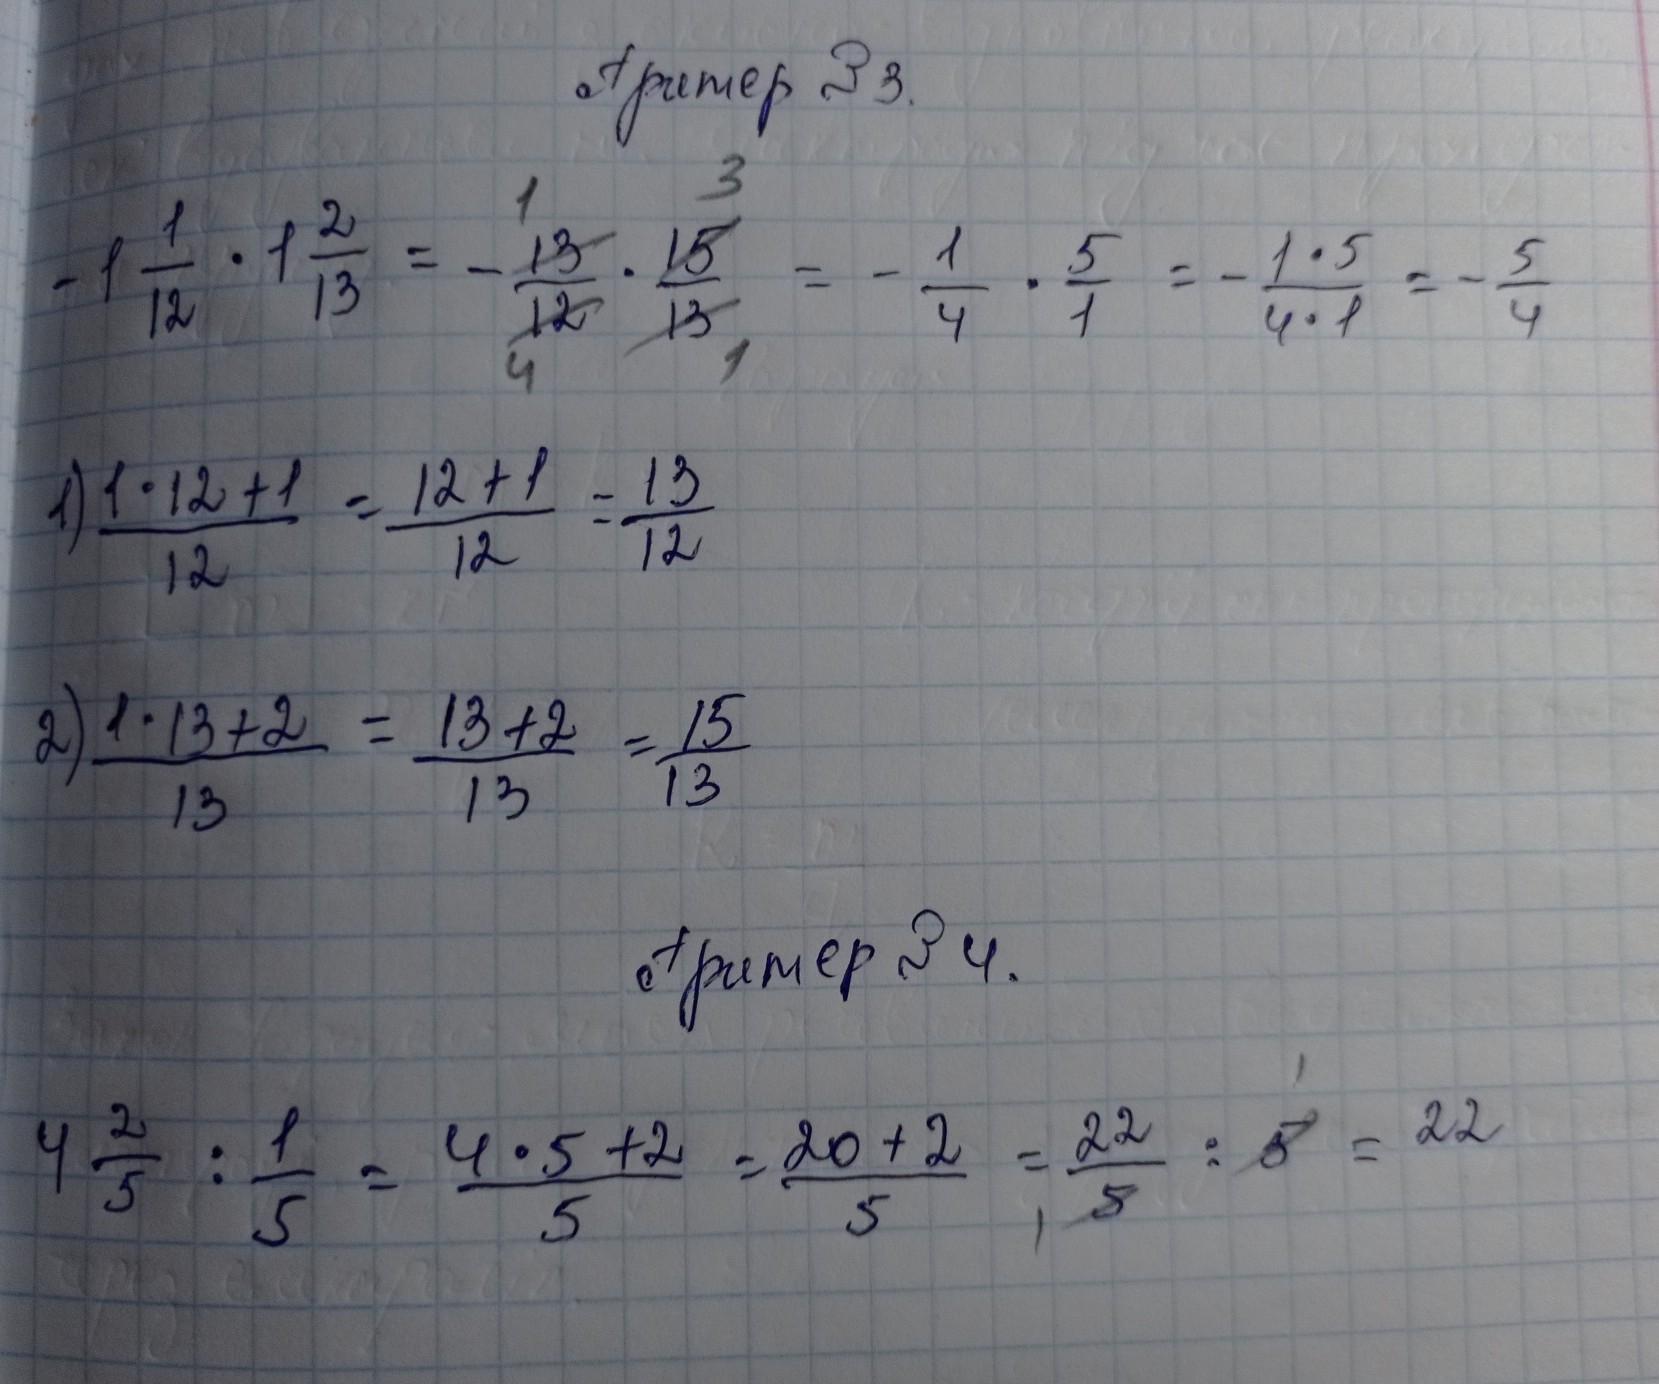 Пример № 3.
-1 1/12 · 1 2/13 = - 13/12 · 15/13 = - 1/4 · 5/1 = - 1·5/4·1 = - 5/4
1 3
4 1
1) 1·12+1/12 = 12+1/12 = 13/12
2) 1·13+2/13 = 13+2/13 = 15/13
Пример № 4.
4 2/5 : 1/5 = 4·5+2/5 = 20+2/5 = 22/5 : 5 = 22
1
1